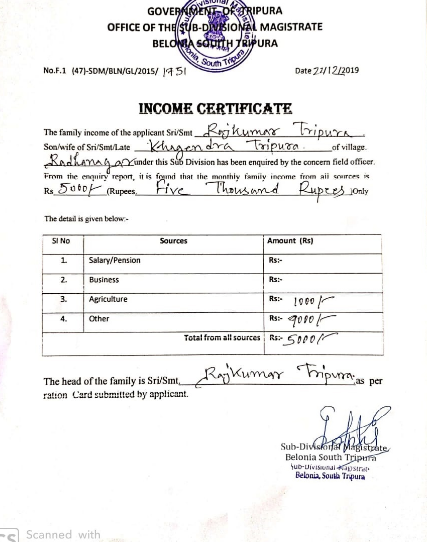 GOVERNMENT OF TRIPURA
OFFICE OF THE SUB-DIVISIONAL MAGISTRATE
BELONIA SOUTH TRIPURA
No.F.1 (47)-SDM/BLN/GL/2015/ 1951 Date 27/12/2019
INCOME CERTIFICATE
The family income of the applicant Sri/Smt Rajkumar Tripura
Son/wife of Sri/Smt/Late Khagendra Tripura of village.
Radhanagar under this Sub Division has been enquired by the concern field officer.
From the enquiry report, it is found that the monthly family income from all sources is
Rs 5000/- (Rupees, Five Thousand Rupees )Only
The detail is given below:-
Sl No Sources Amount (Rs)
1. Salary/Pension Rs:-
2. Business Rs:-
3. Agriculture Rs:- 1000/-
4. Other Rs:- 4000/-
Total from all sources Rs:- 5000/-
The head of the family is Sri/Smt, Rajkumar Tripura as per
ration Card submitted by applicant.
Sub-Divisional Magistrate
Belonia South Tripura
Sub-Divisional Magistrate
Belonia, South Tripura
CS Scanned with